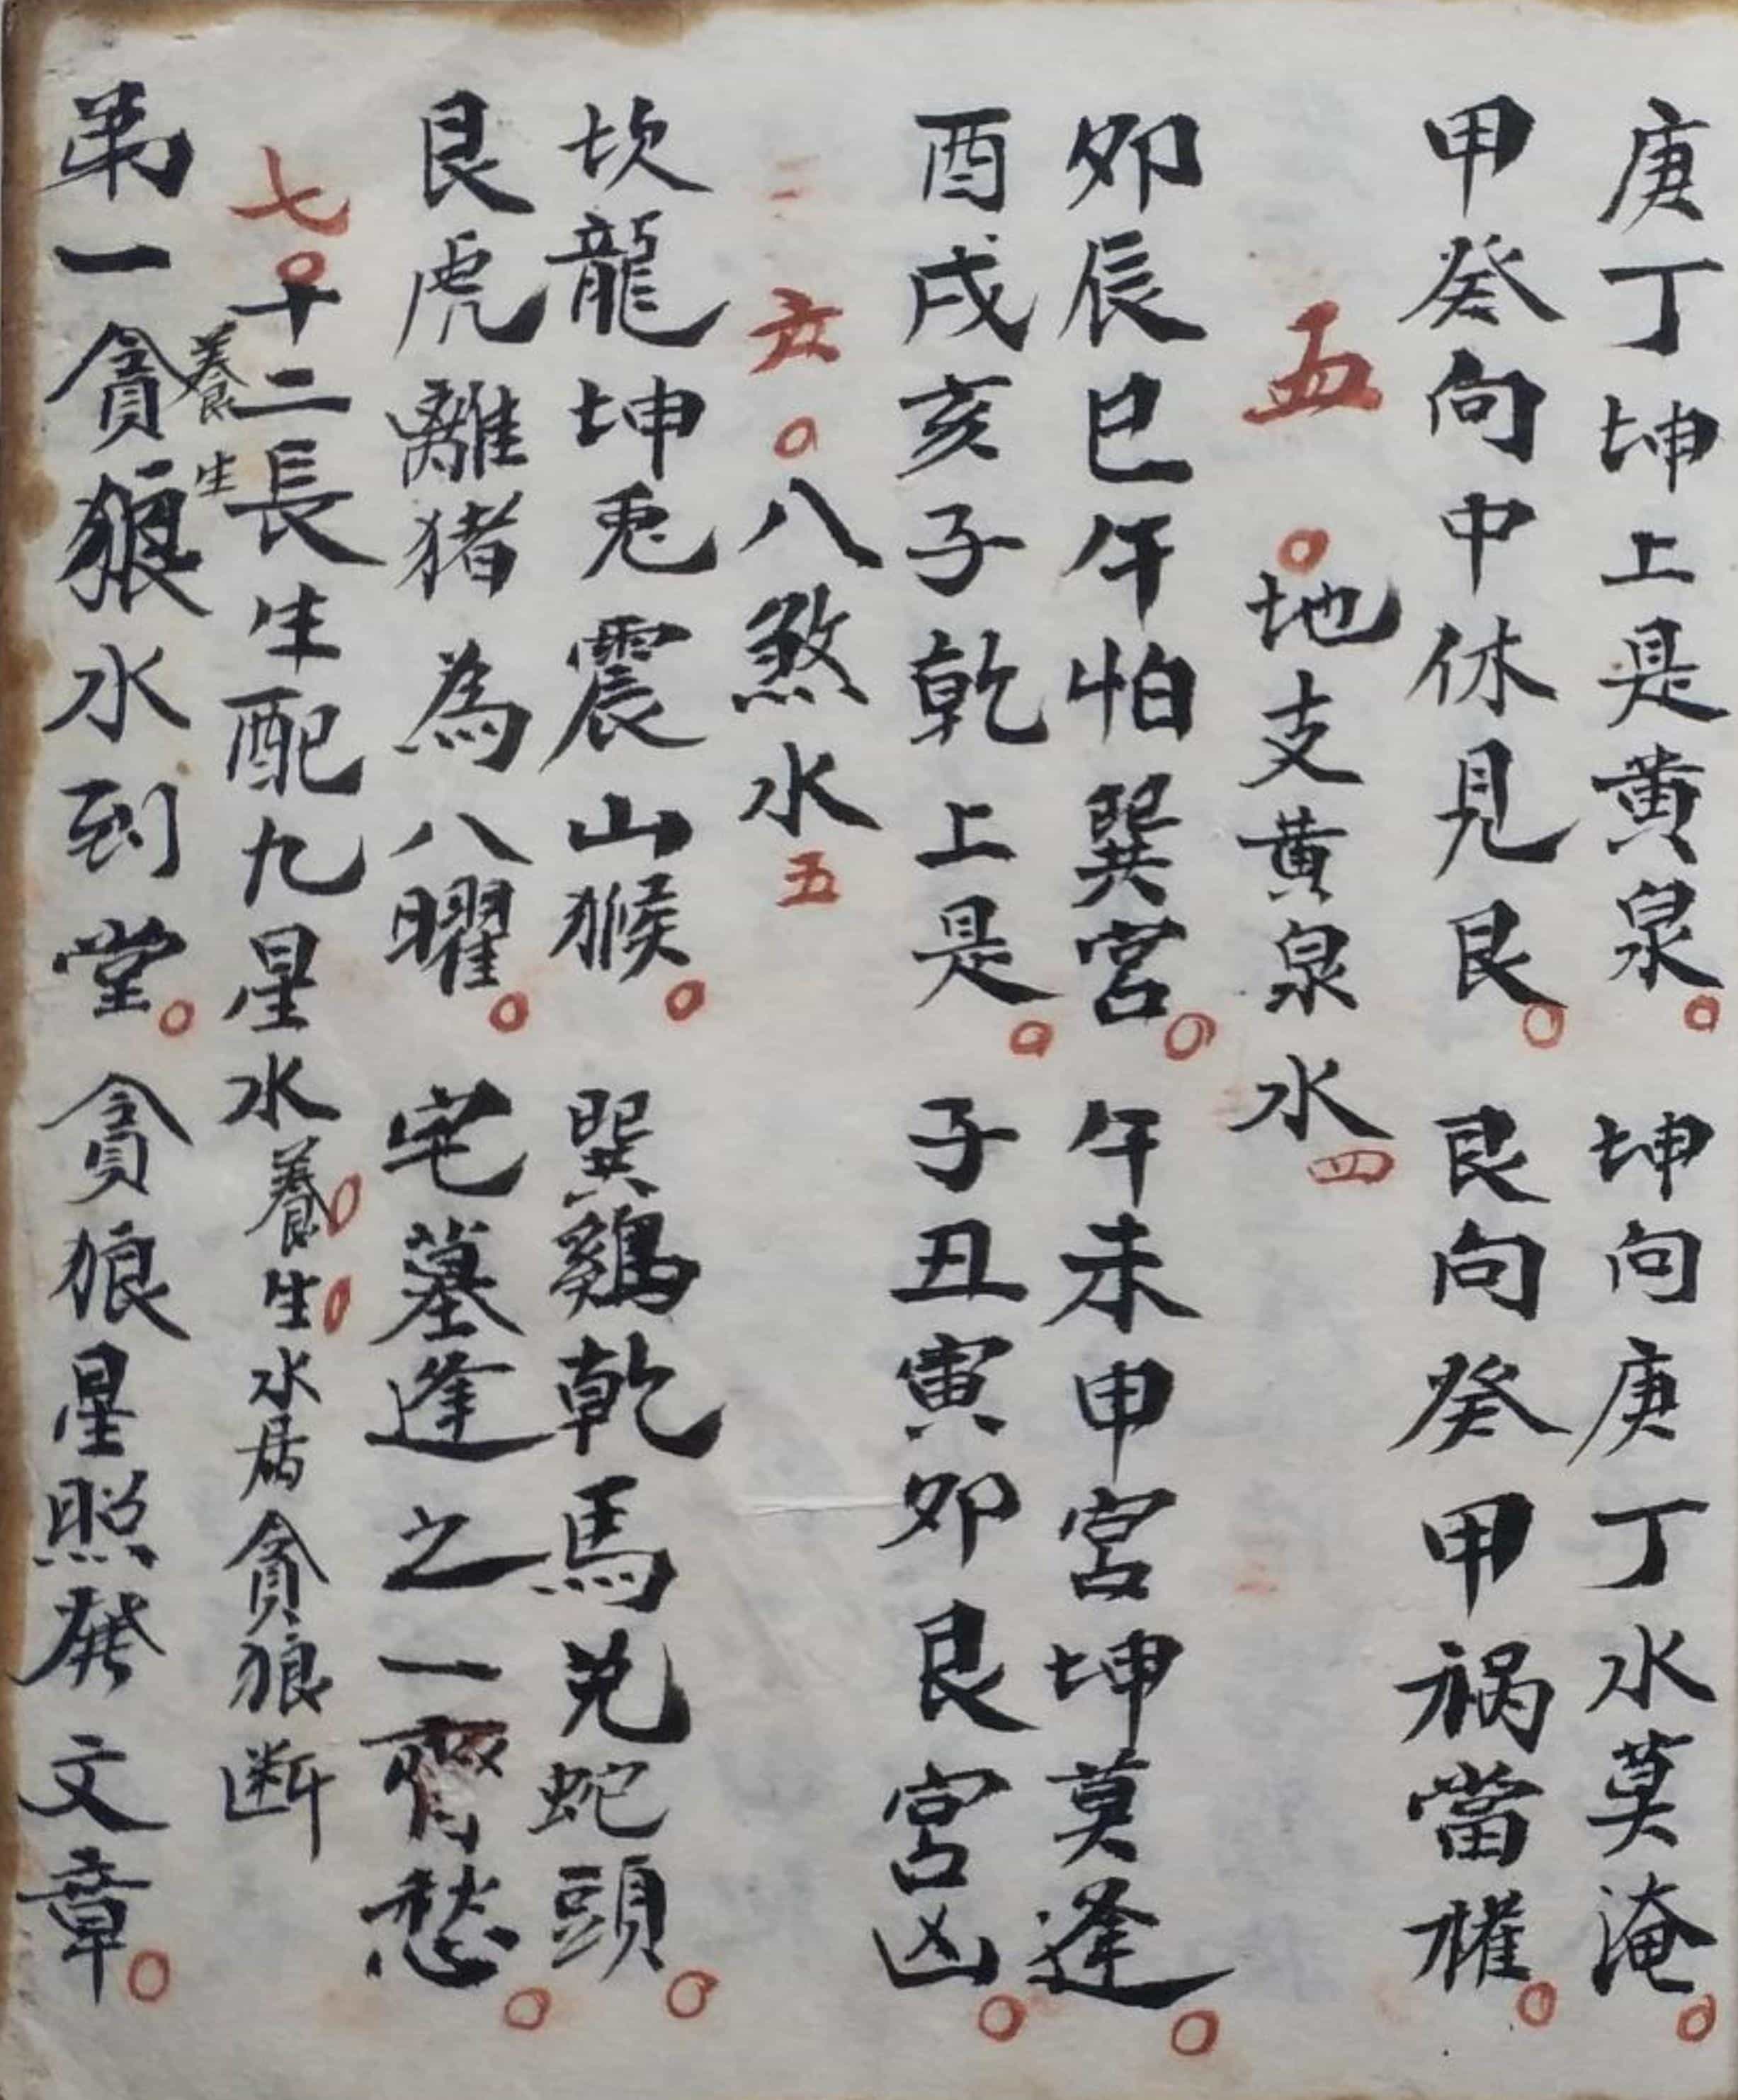 庚丁坤上是黄泉。坤向庚丁水莫淹。
甲癸向中休見艮。艮向癸甲祸當權。
五。地支黄泉水四
卯辰巳午怕巽宮。午未申宮坤莫逢。
酉戌亥子乾上是。子丑寅卯艮宮凶。
六。八煞水五
坎龍坤兎震山猴。巽鷄乾馬兌蛇頭。
艮虎離猪為八曜。宅墓逢之一齊愁。
七。十二長生配九星水養。生。水居貪狼断
養生
弟一貪狼水到堂。貪狼星照發文章。